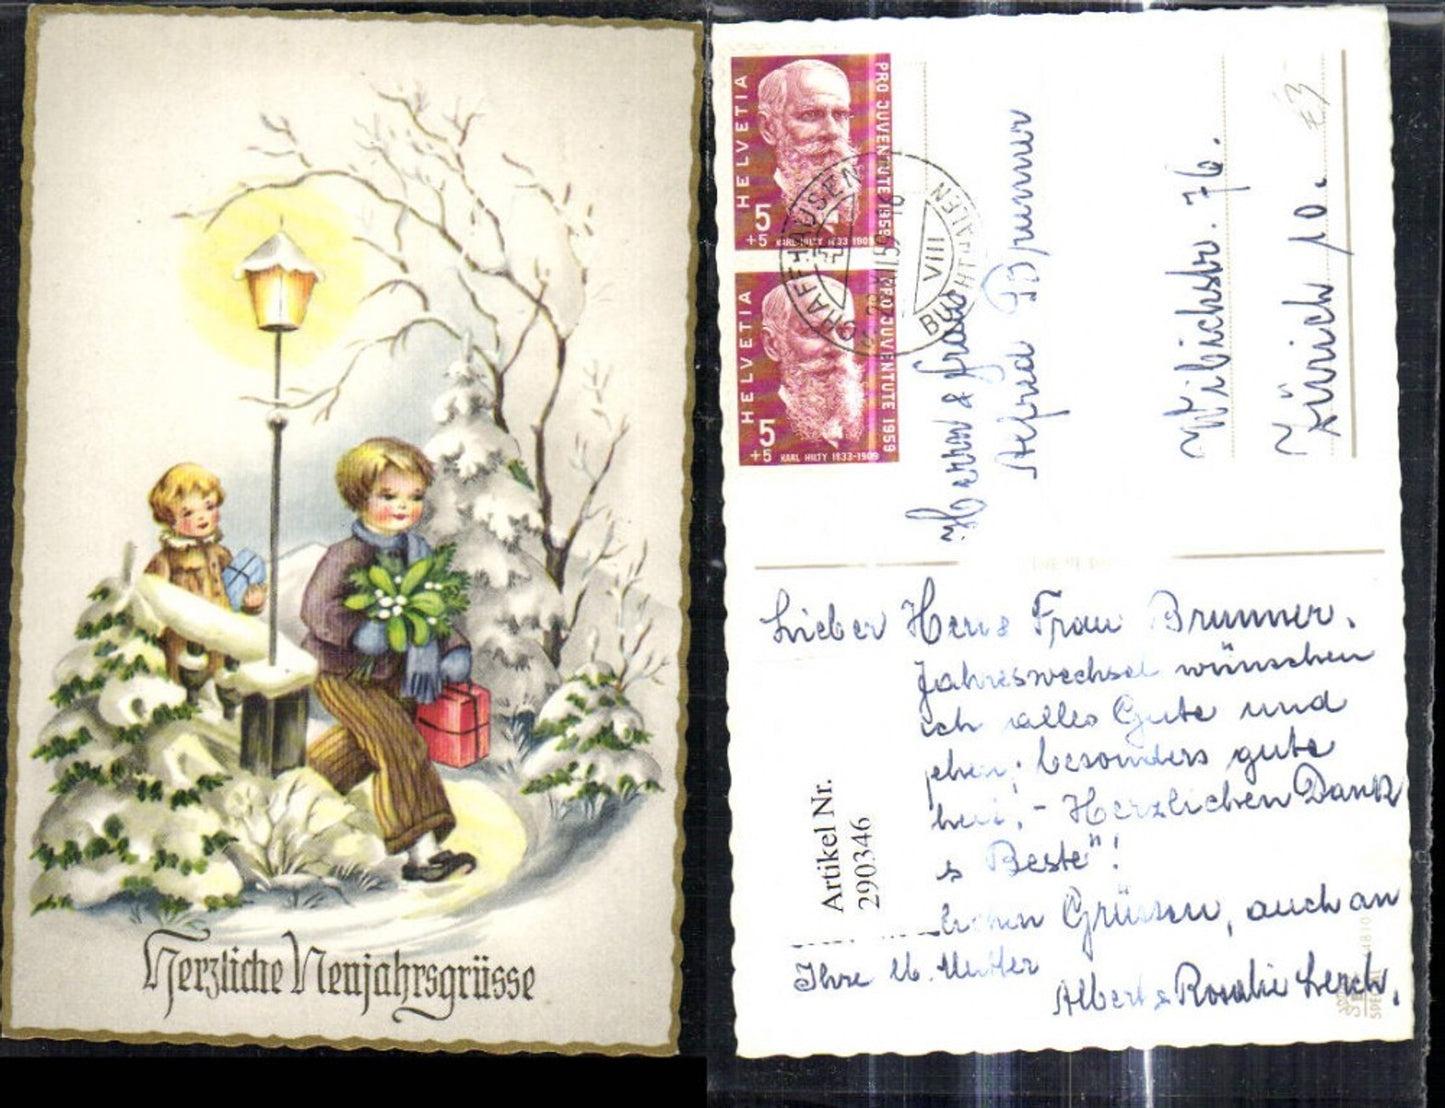 Herzliche Neujahrsgrüsse
HELVETIA
PRO JUVENTUTE 1959
5
+5
KARL HILTY 1833-1909
HELVETIA
PRO JUVENTUTE 1959
5
+5
KARL HILTY 1833-1909
SCHAFFHAUSEN
XII.59
VIII
BUCHTHALEN
Herrn & Frau
Alfred Brunner
Wibichstr. 76.
Zürich 10.
£3
Lieber Herr & Frau Brunner.
Jahreswechsel wünschen
ich alles Gute und
besonders gute
Herzlichen Dank
s Beste"!
lichen Grüssen, auch an
Ihre lb. Mutter
Albert & Rosalie Lerch.
Artikel Nr.
290346
4810